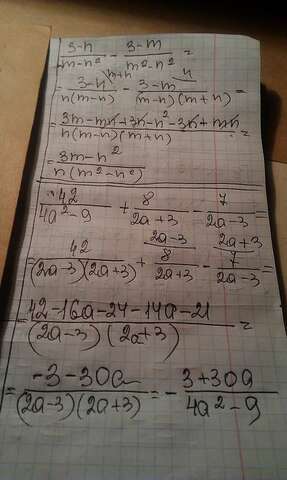 3-n/mn-n² - 3-m/m²-n² =
= 3-n/n(m-n) - 3-m/(m-n)(m+n) =
m+n n
= 3m-mn+3n-n²-3n+mn/n(m-n)(m+n) =
= 3m-n²/n(m²-n²)
42/4a²-9 + 8/2a+3 - 7/2a-3 =
2a-3 2a+3
= 42/(2a-3)(2a+3) + 8/2a+3 - 7/2a-3 =
= 42-16a-24-14a-21/(2a-3)(2a+3) =
= -3-30a/(2a-3)(2a+3) = - 3+30a/4a²-9